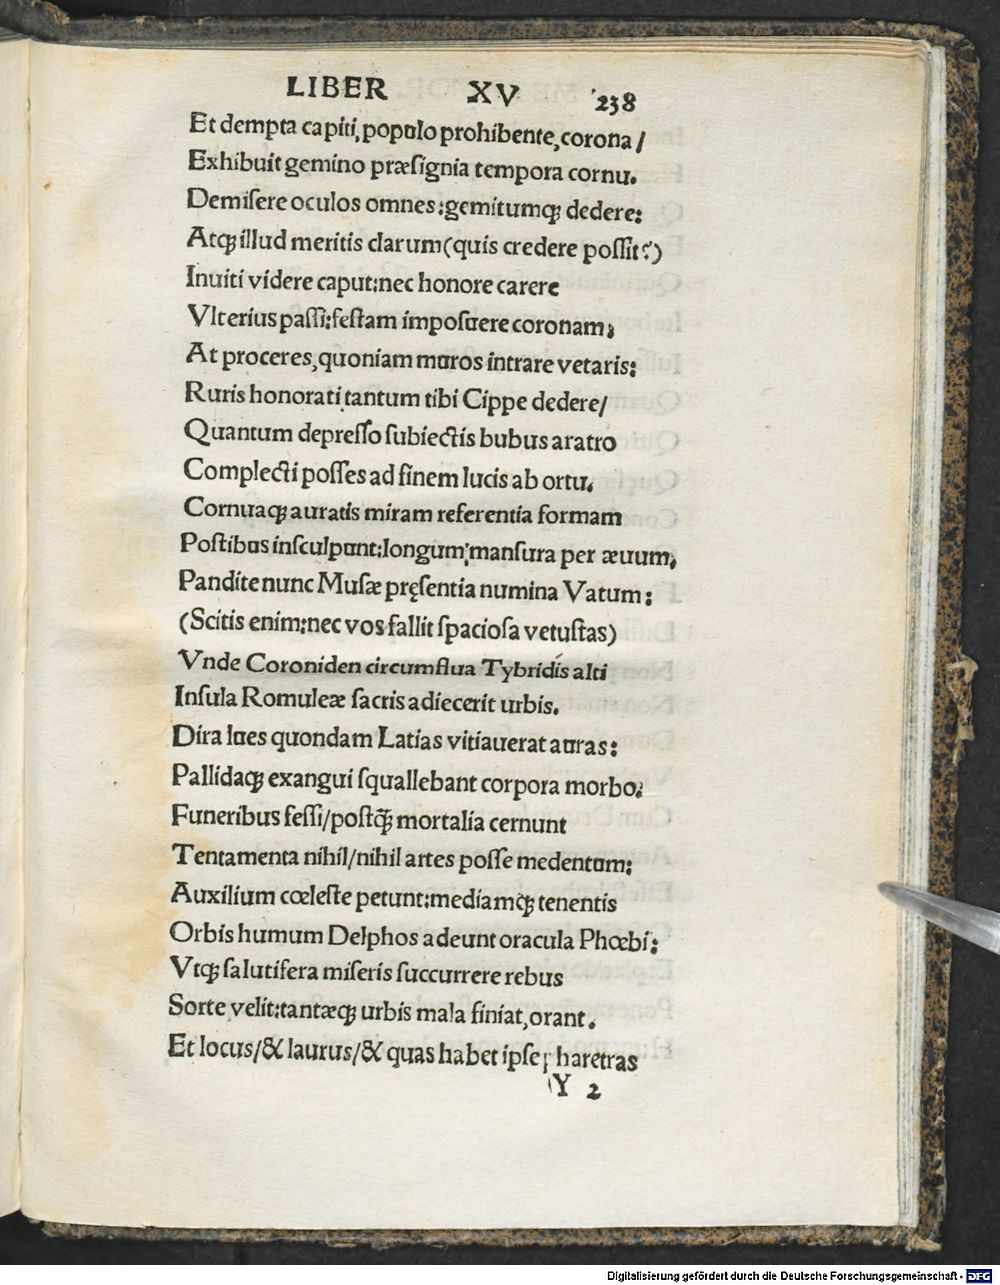 LIBER XV 238
Et dempta capiti, populo prohibente, corona/
Exhibuit gemino præſignia tempora cornu.
Demiſere oculos omnes: gemitumqꝫ dedere:
Atqꝫ illud meritis clarum (quis credere poſſit?)
Inuiti videre caput: nec honore carere
Vlterius paſſi: feſtam impoſuere coronam;
At proceres, quoniam muros intrare vetaris:
Ruris honorati tantum tibi Cippe dedere/
Quantum depreſſo ſubiectis bubus aratro
Complecti poſſes ad finem lucis ab ortu.
Cornuaqꝫ auratis miram referentia formam
Poſtibus inſculpunt: longum manſura per æuum;
Pandite nunc Muſæ pręſentia numina Vatum:
(Scitis enim: nec vos fallit ſpacioſa vetuſtas)
Vnde Coroniden circumflua Tybridis alti
Inſula Romuleæ ſacris adiecerit urbis.
Dira lues quondam Latias vitiauerat auras:
Pallidaqꝫ exangui ſquallebant corpora morbo.
Funeribus feſſi/poſtq̃ꝫ mortalia cernunt
Tentamenta nihil/nihil artes poſſe medentum:
Auxilium cœleſte petunt: mediamqꝫ tenentis
Orbis humum Delphos adeunt oracula Phœbi:
Vtqꝫ ſalutifera miſeris ſuccurrere rebus
Sorte velit: tantæqꝫ urbis mala finiat, orant.
Et locus/& laurus/& quas habet ipſe pharetras
Y 2
Digitalisierung gefördert durch die Deutsche Forschungsgemeinschaft - DFG